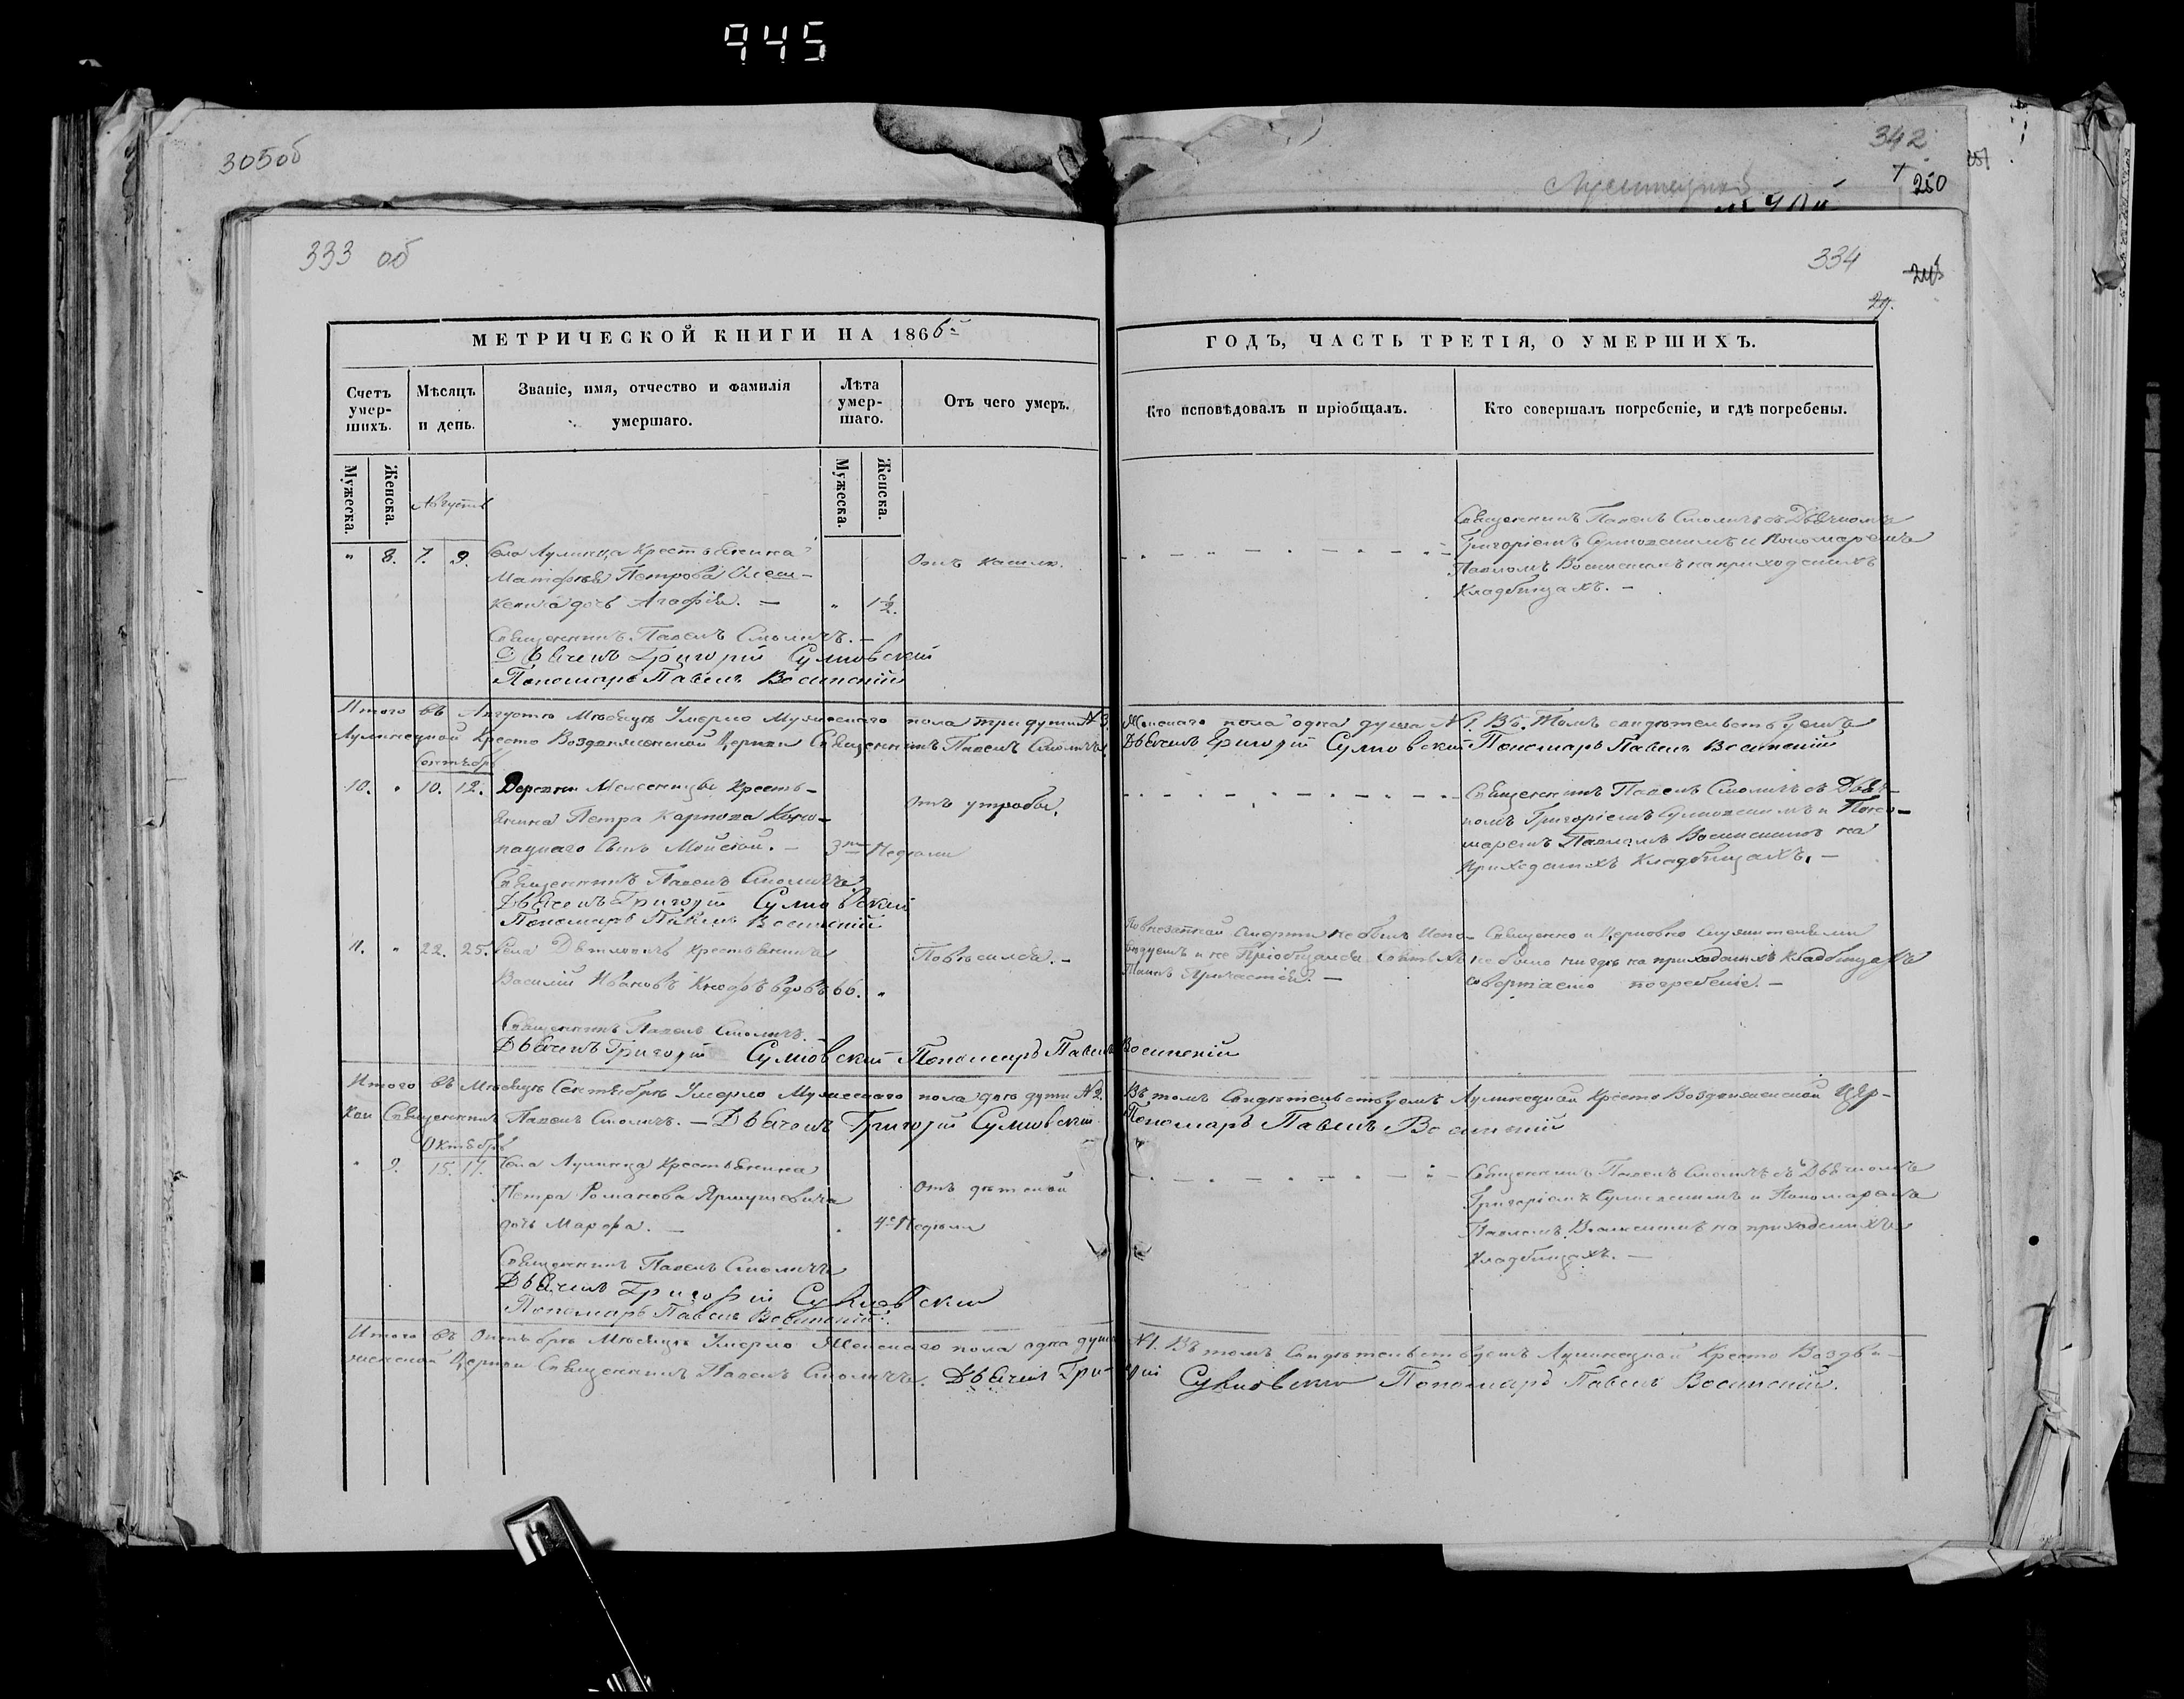 945
305об
342
250
333 об
334
29.
МЕТРИЧЕСКОЙ КНИГИ НА 1866й
ГОДЪ, ЧАСТЬ ТРЕТІЯ, О УМЕРШИХЪ.
Счетъ умер-шихъ.
Мѣсяцъ и день.
Званіе, имя, отчество и фамилія умершаго.
Лѣта умер-шаго.
Отъ чего умеръ.
Кто исповѣдовалъ и пріобщалъ.
Кто совершалъ погребеніе, и гдѣ погребены.
Мужеска.
Женска.
Мужеска.
Женска.
Августъ
" 8. 7. 9. Села Лунинца Крестьянина
Матѳея Петрова
дочь Агафія. — " 1½.
Отъ кашлю.
Священникъ Павелъ Смоличъ съ Дьячкомъ
Григоріемъ Сулковскимъ и Пономаремъ
Павломъ на приходскихъ
Кладбищахъ. —
Священникъ Павелъ Смоличъ. —
Дьячекъ Григорій Сулковскій
Пономарь Павелъ
Итого въ Августѣ Мѣсяцѣ Умерло Мужескаго пола три души № 3. Женскаго пола одна душа № 1. Въ томъ свидѣтельствуемъ
Лунинецкой Кресто Воздвиженской Церкви Священникъ Павелъ Смоличъ. Дьячекъ Григорій Сулковскій Пономарь Павелъ
Сентябрь
10. " 10. 12. Деревни Мелесницы Кресть-
янина Петра Карпова
Сынъ Мойсей. — 3 Недѣли
Отъ утробы.
Священникъ Павелъ Смоличъ съ Дьяч-
комъ Григоріемъ Сулковскимъ и Поно-
маремъ Павломъ на
приходскихъ Кладбищахъ. —
Священникъ Павелъ Смоличъ.
Дьячекъ Григорій Сулковскій
Пономарь Павелъ
11. " 22. 25. Села Крестьянинъ
Василій Ивановъ вдовъ 66. "
Повѣсился. —
По внезапной смерти не былъ Испо-
вѣдуемъ и не Пріобщался Святыхъ
Таинъ Причастія. —
Священно и Церковно служителями
не было нигдѣ на приходскихъ Кладбищахъ
совершаемо погребеніе. —
Священникъ Павелъ Смоличъ.
Дьячекъ Григорій Сулковскій Пономарь Павелъ
Итого въ Мѣсяцѣ Сентябрѣ Умерло Мужескаго пола двѣ души № 2. Въ томъ Свидѣтельствуемъ Лунинецкой Кресто Воздвиженской Цер-
кви Священникъ Павелъ Смоличъ. — Дьячекъ Григорій Сулковскій Пономарь Павелъ
Октябрь
" 9. 15. 17. Села Лунинца Крестьянина
Петра Романова Ярмушевича
дочь Марѳа. — " 4 Недѣли
Отъ дѣтской
Священникъ Павелъ Смоличъ съ Дьячкомъ
Григоріемъ Сулковскимъ и Пономаремъ
Павломъ на приходскихъ
Кладбищахъ. —
Священникъ Павелъ Смоличъ
Дьячекъ Григорій Сулковскій
Пономарь Павелъ
Итого въ Октябрѣ Мѣсяцѣ Умерло Женскаго пола одна душа № 1. Въ томъ Свидѣтельствуемъ Лунинецкой Кресто Воздви-
женской Церкви Священникъ Павелъ Смоличъ. Дьячекъ Григорій Сулковскій Пономарь Павелъ